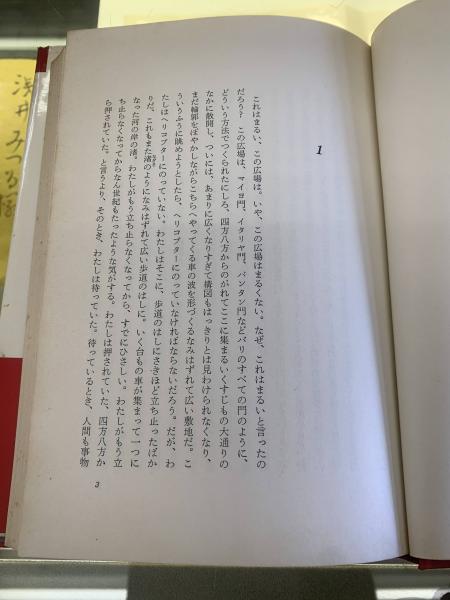 1
これはまるい、この広場は。いや、この広場はまるくない。なぜ、これはまるいと言ったの
だろう? この広場は、マイヨ門、イタリヤ門、パンタン門などパリのすべての門のように、
どういう方法でつくられたにしろ、四方八方からのがれてここに集まるいくすじもの大通りの
なかに散開し、ついには、あまりに広くなりすぎて構図もはっきりとは見わけられなくなり、
まだ輪郭をぼやかしながらこちらへやってくる車の波を形づくるなみはずれて広い敷地だ。こ
ういうふうに眺めようとしたら、ヘリコプターにのっていなければならないだろう。だが、わ
たしはヘリコプターにのっていない。わたしはそこに、歩道のはしにさきほど立ち止ったばか
りだ、これもまた渚のようになみはずれて広い歩道のはしに。いく台もの車が集まって一つに
なった河の岸の渚。わたしがもう立ち止らなくなってから、すでにひさしい。わたしがもう立
ち止らなくなってからなん世紀もたったような気がする。わたしは押されていた、四方八方か
ら押されていた。と言うより、そのとき、わたしは待っていた。待っているとき、人間も事物
3
浅井みつる